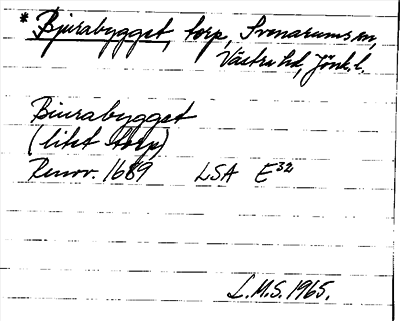 * Bjurabygget, torp, Svenarums sn,
Västra hd, Jönk. l.
Biurabygget
(litet torp)
Renov. 1689 LSA E32
L.M.S. 1965.